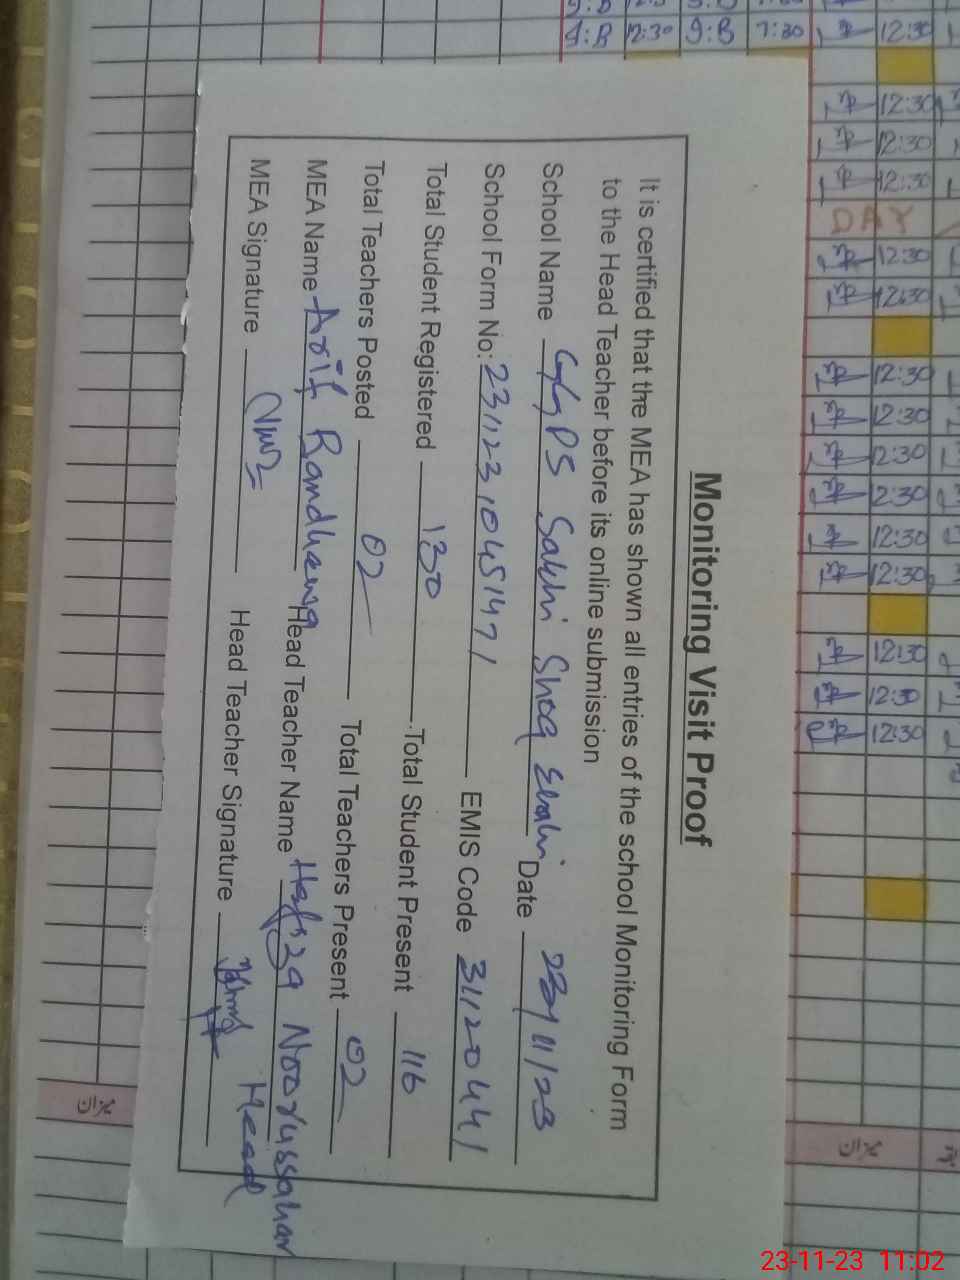 Monitoring Visit Proof
It is certified that the MEA has shown all entries of the school Monitoring Form
to the Head Teacher before its online submission
School Name GGPS Sakhi Shoq Elahi Date 23/11/23
School Form No: 23112310451471 EMIS Code 31120441
Total Student Registered 130 Total Student Present 116
Total Teachers Posted 02 Total Teachers Present 02
MEA Name Arif Randhawa Head Teacher Name Hafsza Noorussahar
MEA Signature Head Teacher Signature Head
9:B 12:30 9:B 7:30 12:30
12:30
12:30
12:30
DAY
12:30
12:30
12:30
12:30
12:30
12:30
12:30
12:30
12:30
12:30
12:30
میزان
میزان
23-11-23 11:02